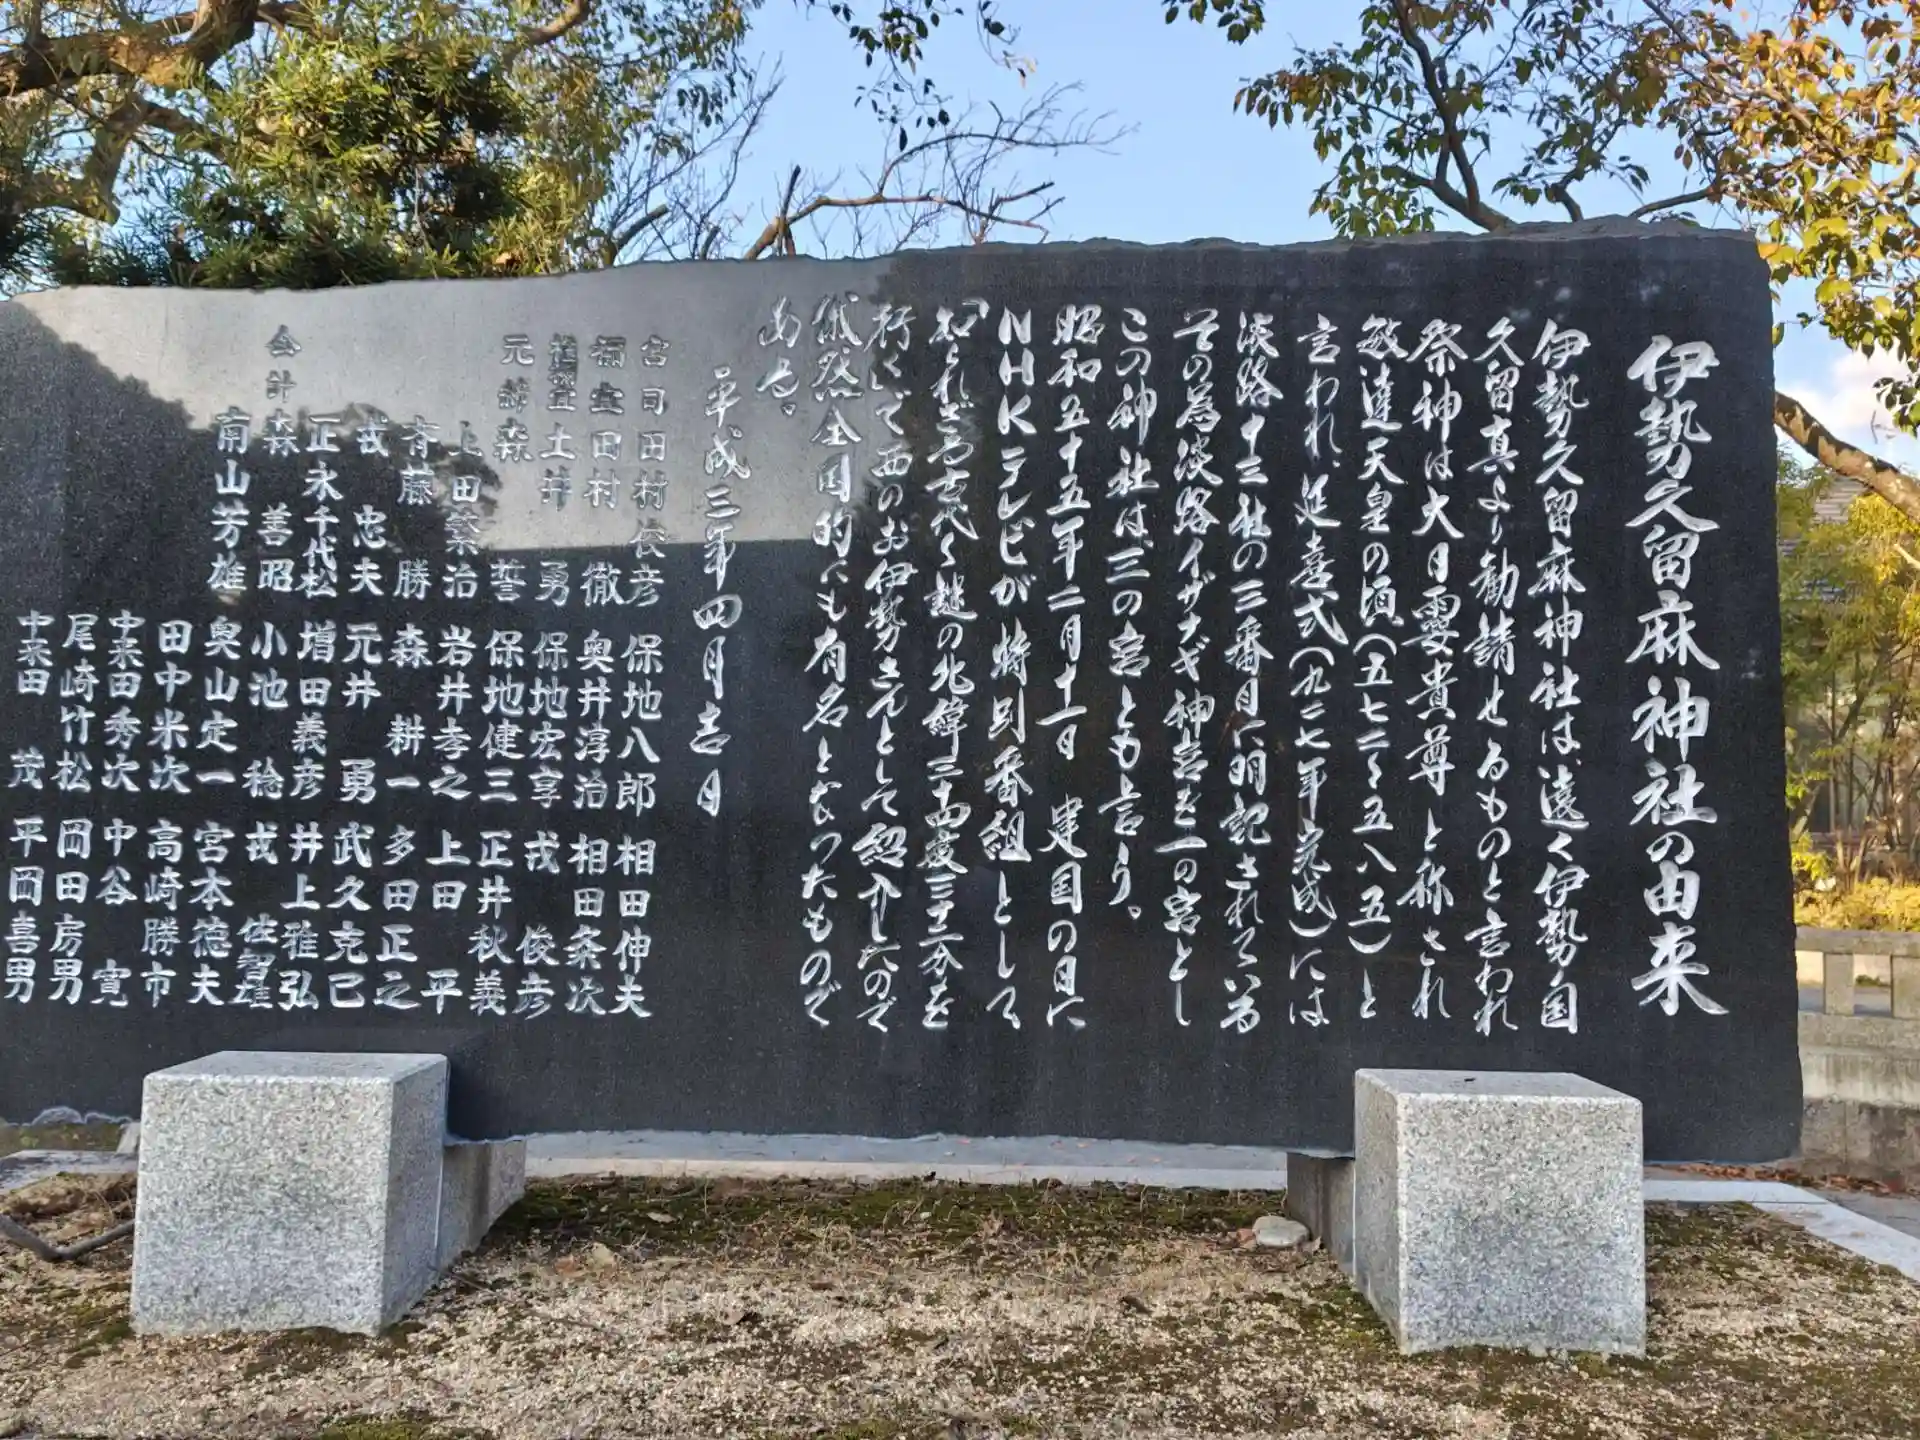 伊勢久留麻神社の由来
伊勢久留麻神社は、遠く伊勢国
久留真より勧請せるものと言われ
祭神は大日霎貴尊と称され
敏達天皇の頃(五七二〜五八五)と
言われ、延喜式(九二七年完成)には
淡路十三社の三番目に明記されている
その為淡路イザナギ神宮を一の宮とし
この神社は、三の宮とも言う。
昭和五十五年二月十一日 建国の日に
NHKテレビが特別番組として
「知られざる古代〜謎の北緯三十四度三十二分を
行く」で西のお伊勢さんとして紹介したので
俄然全国的にも有名となったもので
ある。
平成三年四月吉日
宮司 田村俊彦 保地八郎 相田伸夫
禰宜 田村 徹 奥井淳治 相田粂次
禰宜 土井 勇 保地宏享 戎 俊彦
元総 森 誓 保地健三 正井秋義
上田粂治 岩井孝之 上田 平
斉藤 勝 森 耕一 多田正之
戎 忠夫 元井 勇 武久克己
正木千代松 増田義彦 井上雅弘
会計 森 善昭 小池 稔 戎 佐智雄
南山芳雄 奥山定一 宮本徳夫
田中米次 高崎勝市
中来田秀次 中谷 寛
尾崎竹松 岡田房男
中来田 茂 平岡喜男